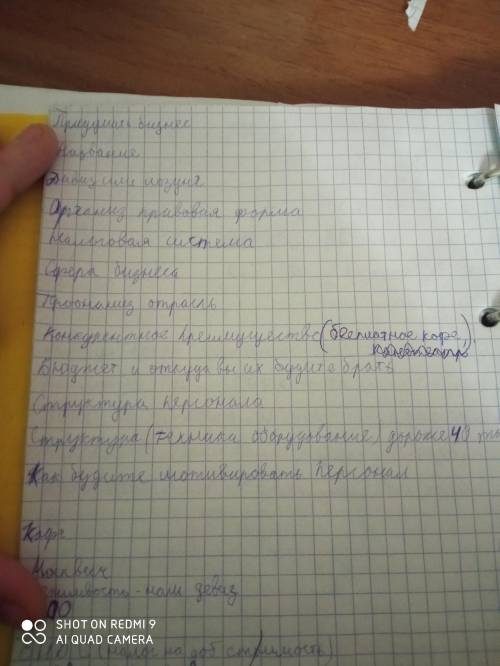 Придумать бизнес
Название
Девиз или лозунг
Организ правовая форма
Налоговая система
Сфера бизнеса
отрасль
Конкурентное преимущество (бесплатное кофе,
Бюджет и откуда вы их будите брать
Структура персонала
Структура (техника оборудование) дороже 40 ты
Как будите мотивировать персонал
Кафе
Москвич
наш девиз
ООО
(налог на доб стоимость)
SHOT ON REDMI 9
AI QUAD CAMERA